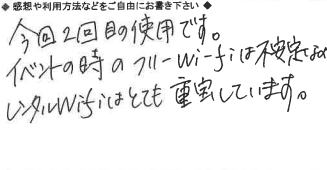 ◆ 感想や利用方法などをご自由にお書き下さい ◆
今回2回目の使用です。
イベントの時のフリーWi-fiは不安定なので
レンタルWifiはとても重宝しています。